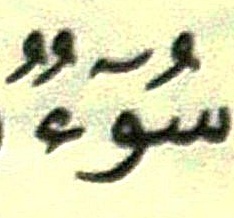 سُوٓءٌ